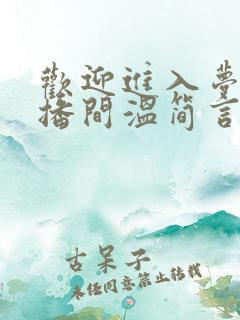 歡迎進入夢
播間溫简言
古呆子
未经同意禁止转载